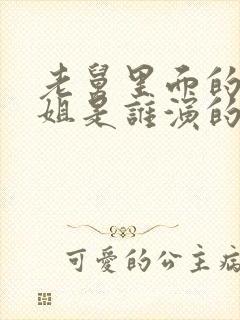 老舅里面的
姐是誰演的
可愛的公主病